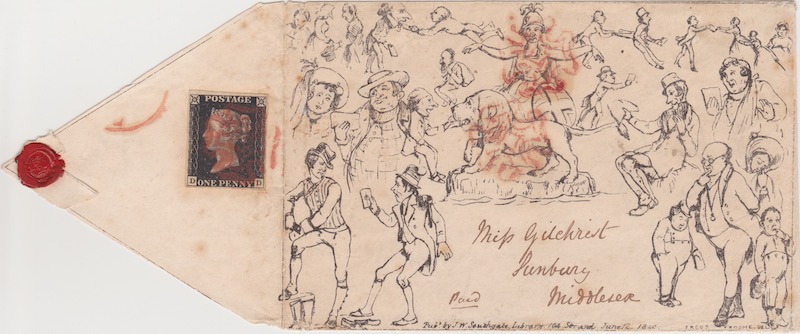 POSTAGE
D D
ONE PENNY
Miss Gilchrist
Sunbury
Middlesex
Paid
Pubd. by J.W. Southgate Library 164 Strand June 12 1840